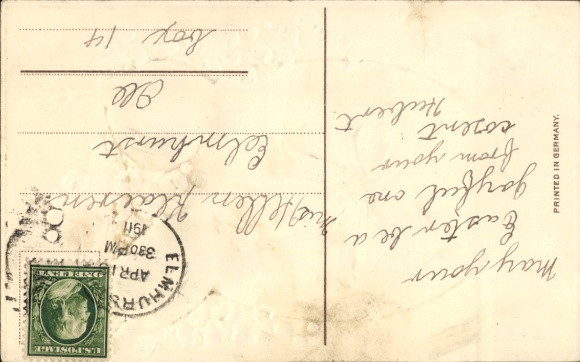 May your
Easter be a
joyful one
from your
cosent
Hubert
PRINTED IN GERMANY.
ELMHURS
APR 1
330 PM
1911
U.S. POSTAGE
ONE CENT
Miss Hellen Klaesen
Eelmhurst
Ill
box 14